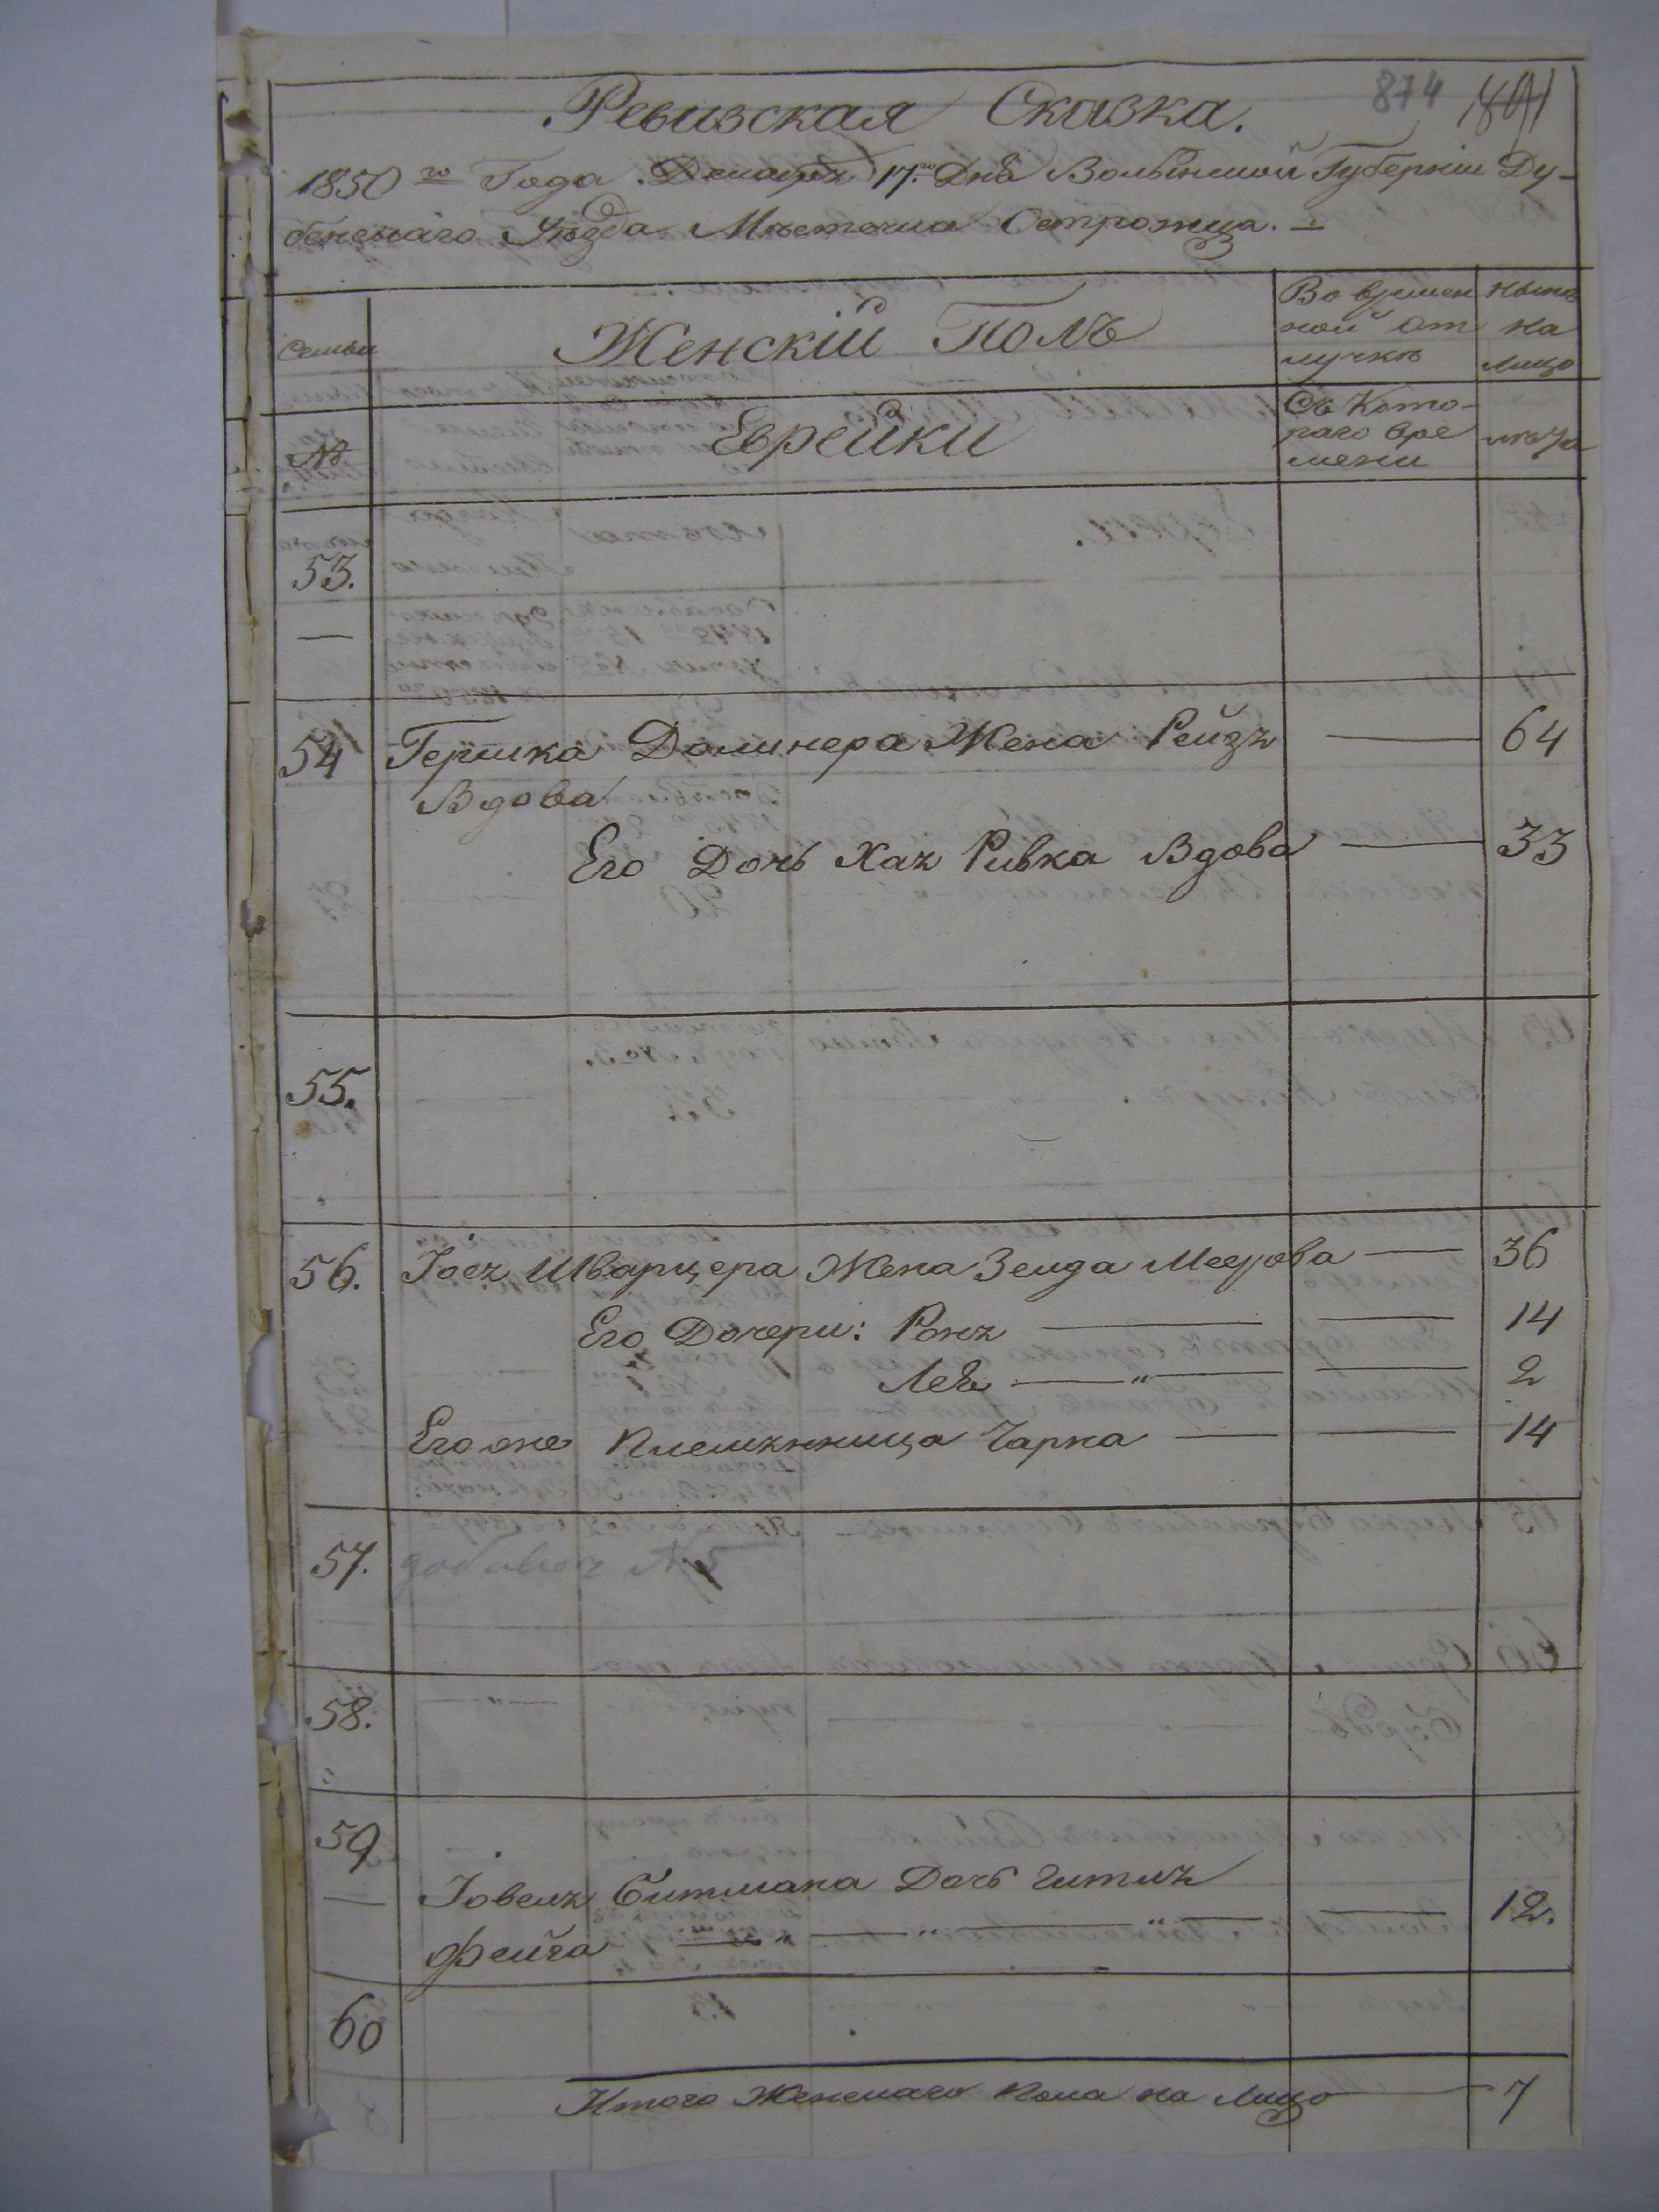 874 891
Ревизская Сказка.
1850го Года Декабря 17го Дня Волынской Губерніи Ду-
бенскаго Уѣзда Мѣстечка Остромца.
Во времен ныне
Женскій Полъ ной От на
Семьи лучкѣ лицо
№ Еврейки Съ Кото- лѣта
раго вре
мени
53.
—
54 Гершка Долинера Жена Рейзя — 64
Вдова
Его Дочь Хая Ривка Вдова — 33
55.
56. Іося Шварцера Жена Зелда Меерова — 36
Его Дочери: Роня — — 14
Лея — " — — 2
Его же Племянница Чарна — — 14
57. добавоч №5
58.
59
— Іовеля Битмана Дочь Гитля
Фейга — " — " — " — — 12.
60
Итого Женскаго пола на Лицо — 7